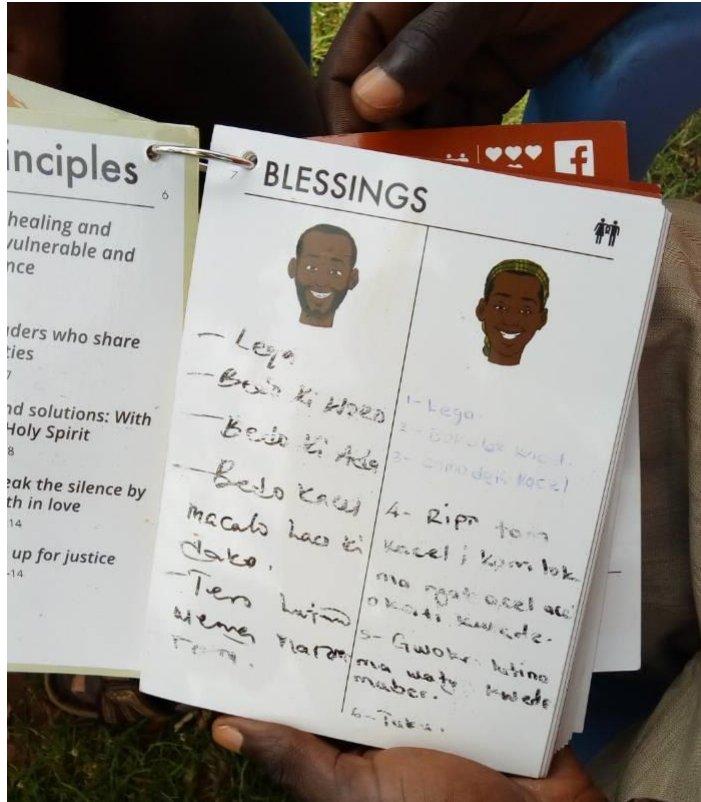 inciples
6
healing and
vulnerable and
nce
ders who share
ties
7
nd solutions: With
Holy Spirit
8
eak the silence by
th in love
14
up for justice
-14
7
BLESSINGS
– Lega
– Bedo ki
– Bedo ki Ada
– Bedo Kacel
macalo Laco ki
dako.
– Tero
1- Lega
2-
3- Kacel
4- Ripo tam
Kacel i kom lok
ma ngat acel
kwede.
5- Gwoko lutino
ma watye kwede
maber.
6- Tuku.
f